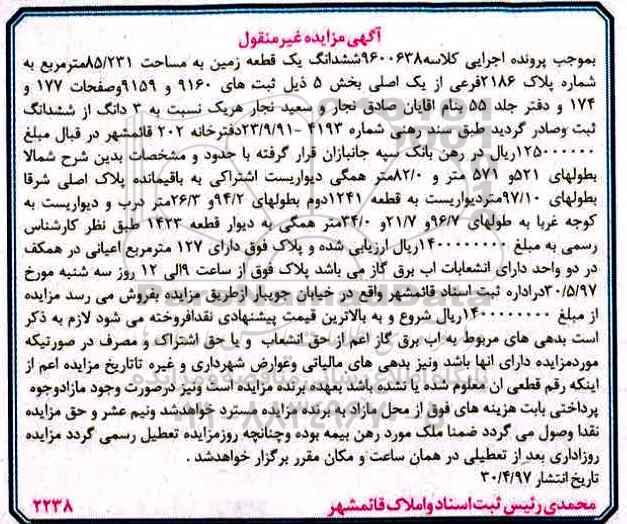 آگهی مزایده غیرمنقول
بموجب پرونده اجرایی کلاسه۹۶۰۰۶۳۸ششدانگ یک قطعه زمین به مساحت ۸۵/۲۳۱مترمربع به
شماره پلاک ۲۱۸۶فرعی از یک اصلی بخش ۵ ذیل ثبت های ۹۱۶۰ و ۹۱۵۹وصفحات ۱۷۷ و
۱۷۴ و دفتر جلد ۵۵ بنام اقایان صادق نجار و سعید نجار هریک نسبت به ۳ دانگ از ششدانگ
ثبت وصادر گردید طبق سند رهنی شماره ۴۱۹۳ -۲۳/۹/۹۱دفترخانه ۲۰۲ قائمشهر در قبال مبلغ
۱۲۵۰۰۰۰۰۰۰ریال در رهن بانک سپه جانبازان قرار گرفته با حدود و مشخصات بدین شرح شمالا
بطولهای ۵۲۱و ۵۷۱ متر و ۸۲/۰متر همگی دیواریست اشتراکی به باقیمانده پلاک اصلی شرقا
بطولهای ۹۷/۱۰متردیواریست به قطعه ۱۲۴۱دوم بطولهای ۹۴/۲و ۲۶/۳متر درب و دیواریست به
کوچه غربا به طولهای ۹۶/۷و ۲۱/۷و ۳۴/۰متر همگی به دیوار قطعه ۱۴۲۳ طبق نظر کارشناس
رسمی به مبلغ ۱۴۰۰۰۰۰۰۰۰۰ریال ارزیابی شده و پلاک فوق دارای ۱۲۷ مترمربع اعیانی در همکف
در دو واحد دارای انشعابات اب برق گاز می باشد پلاک فوق از ساعت ۹الی ۱۲ روز سه شنبه مورخ
۳۰/۵/۹۷دراداره ثبت اسناد قائمشهر واقع در خیابان جویبار ازطریق مزایده بفروش می رسد مزایده
از مبلغ ۱۴۰۰۰۰۰۰۰۰۰ریال شروع و به بالاترین قیمت پیشنهادی نقدافروخته می شود لازم به ذکر
است بدهی های مربوط به اب برق گاز اعم از حق انشعاب و یا حق اشتراک و مصرف در صورتیکه
موردمزایده دارای انها باشد ونیز بدهی های مالیاتی وعوارض شهرداری و غیره تاتاریخ مزایده اعم از
اینکه رقم قطعی ان معلوم شده یا نشده باشد بعهده برنده مزایده است ونیز درصورت وجود مازادوجوه
پرداختی بابت هزینه های فوق از محل مازاد به برنده مزایده مسترد خواهدشد ونیم عشر و حق مزایده
نقدا وصول می گردد ضمنا ملک مورد رهن بیمه بوده وچنانچه روزمزایده تعطیل رسمی گردد مزایده
روزاداری بعد از تعطیلی در همان ساعت و مکان مقرر برگزار خواهدشد .
تاریخ انتشار ۳۰/۴/۹۷
محمدی رئیس ثبت اسناد واملاک قائمشهر ۲۲۳۸